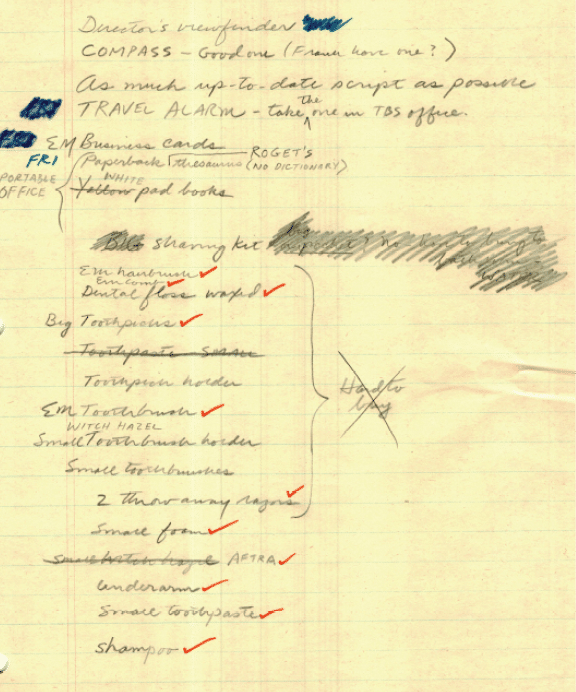 Director's viewfinder
COMPASS - Good one (Frank have one?)
As much up-to-date script as possible
the
TRAVEL ALARM - take one in TBS office.
EM Business cards
FRI
Paperback thesaurus ROGET'S (NO DICTIONARY)
PORTABLE OFFICE
WHITE
Yellow pad books
Shaving kit
EM hairbrush ✓
EM comb ✓
Dental floss waxed ✓
Big Toothpicks ✓
Toothpaste - SMALL
Toothpick holder
Hard to buy
EM Toothbrush ✓
WITCH HAZEL
Small Toothbrush holder
Small toothbrushes
2 throw away razors ✓
Small foam ✓
small witch hazel AFTRA ✓
Underarm ✓
Small toothpaste ✓
shampoo ✓